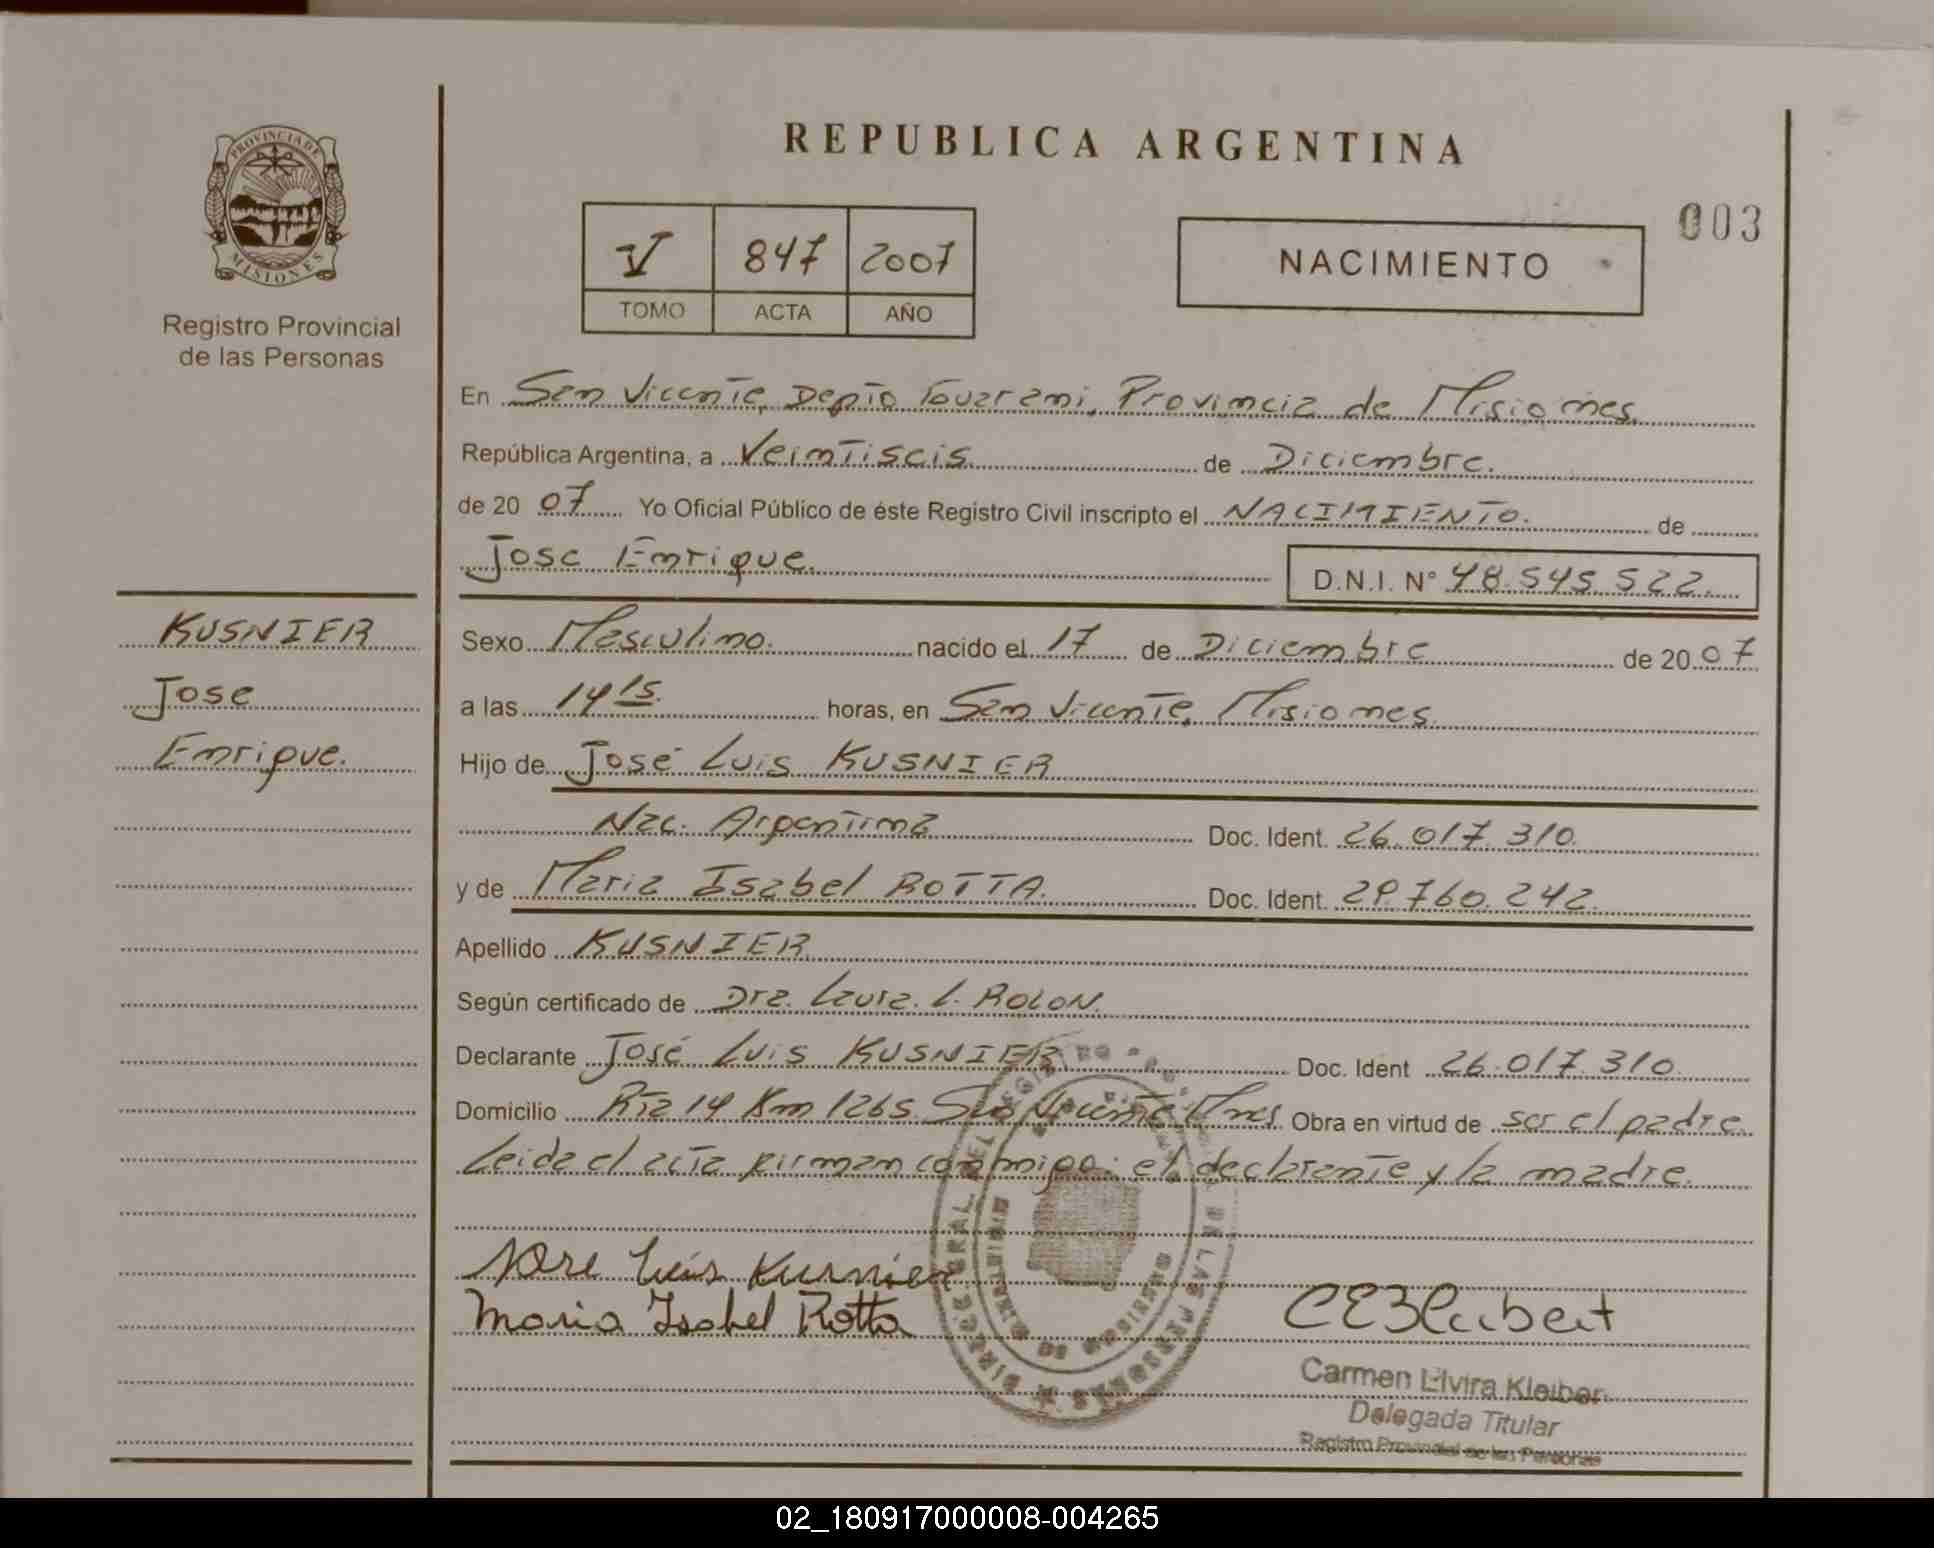 PROVINCIA DE
MISIONES
Registro Provincial
de las Personas
REPUBLICA ARGENTINA
003
V 847 2007
TOMO ACTA AÑO
NACIMIENTO
En San Vicente, Depto Guarani, Provincia de Misiones.
República Argentina, a Veintiseis. de Diciembre.
de 20 07 Yo Oficial Público de éste Registro Civil inscripto el NACIMIENTO. de
Jose Enrique. D.N.I. N° 48.545.522.
KUSNIER
Jose
Enrique.
Sexo Masculino. nacido el 17 de Diciembre de 20 07
a las 14 15. horas, en San Vicente, Misiones.
Hijo de José Luis KUSNIER
Nac. Argentina Doc. Ident. 26.017.310.
y de Maria Isabel ROTTA. Doc. Ident. 29.760.242.
Apellido KUSNIER
Según certificado de Dra. Laura. L. ROLON.
Declarante José Luis KUSNIER Doc. Ident 26.017.310
Domicilio Rta 14 Km 1265 San Vicente Mnes Obra en virtud de ser el padre.
Leida el acta firman conmigo: el declarante y la madre.
Jose Luis Kusnier
Maria Isabel Rotta
Carmen Elvira Kleiber
Delegada Titular
Registro Provincial de las Personas
02_180917000008-004265